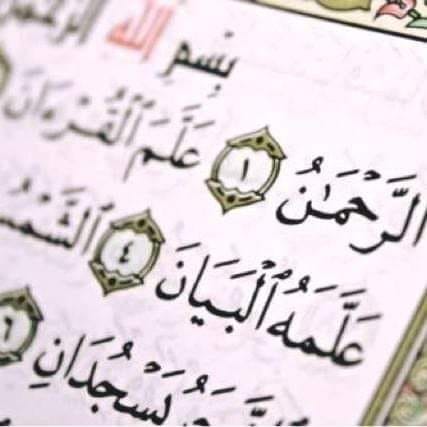 بِسْمِ ٱللَّهِ ٱلرَّحْمَٰنِ
ٱلرَّحْمَٰنُ ١ عَلَّمَ ٱلْقُرْءَانَ
عَلَّمَهُ ٱلْبَيَانَ ٤ ٱلشَّمْسُ
يَسْجُدَانِ ٦